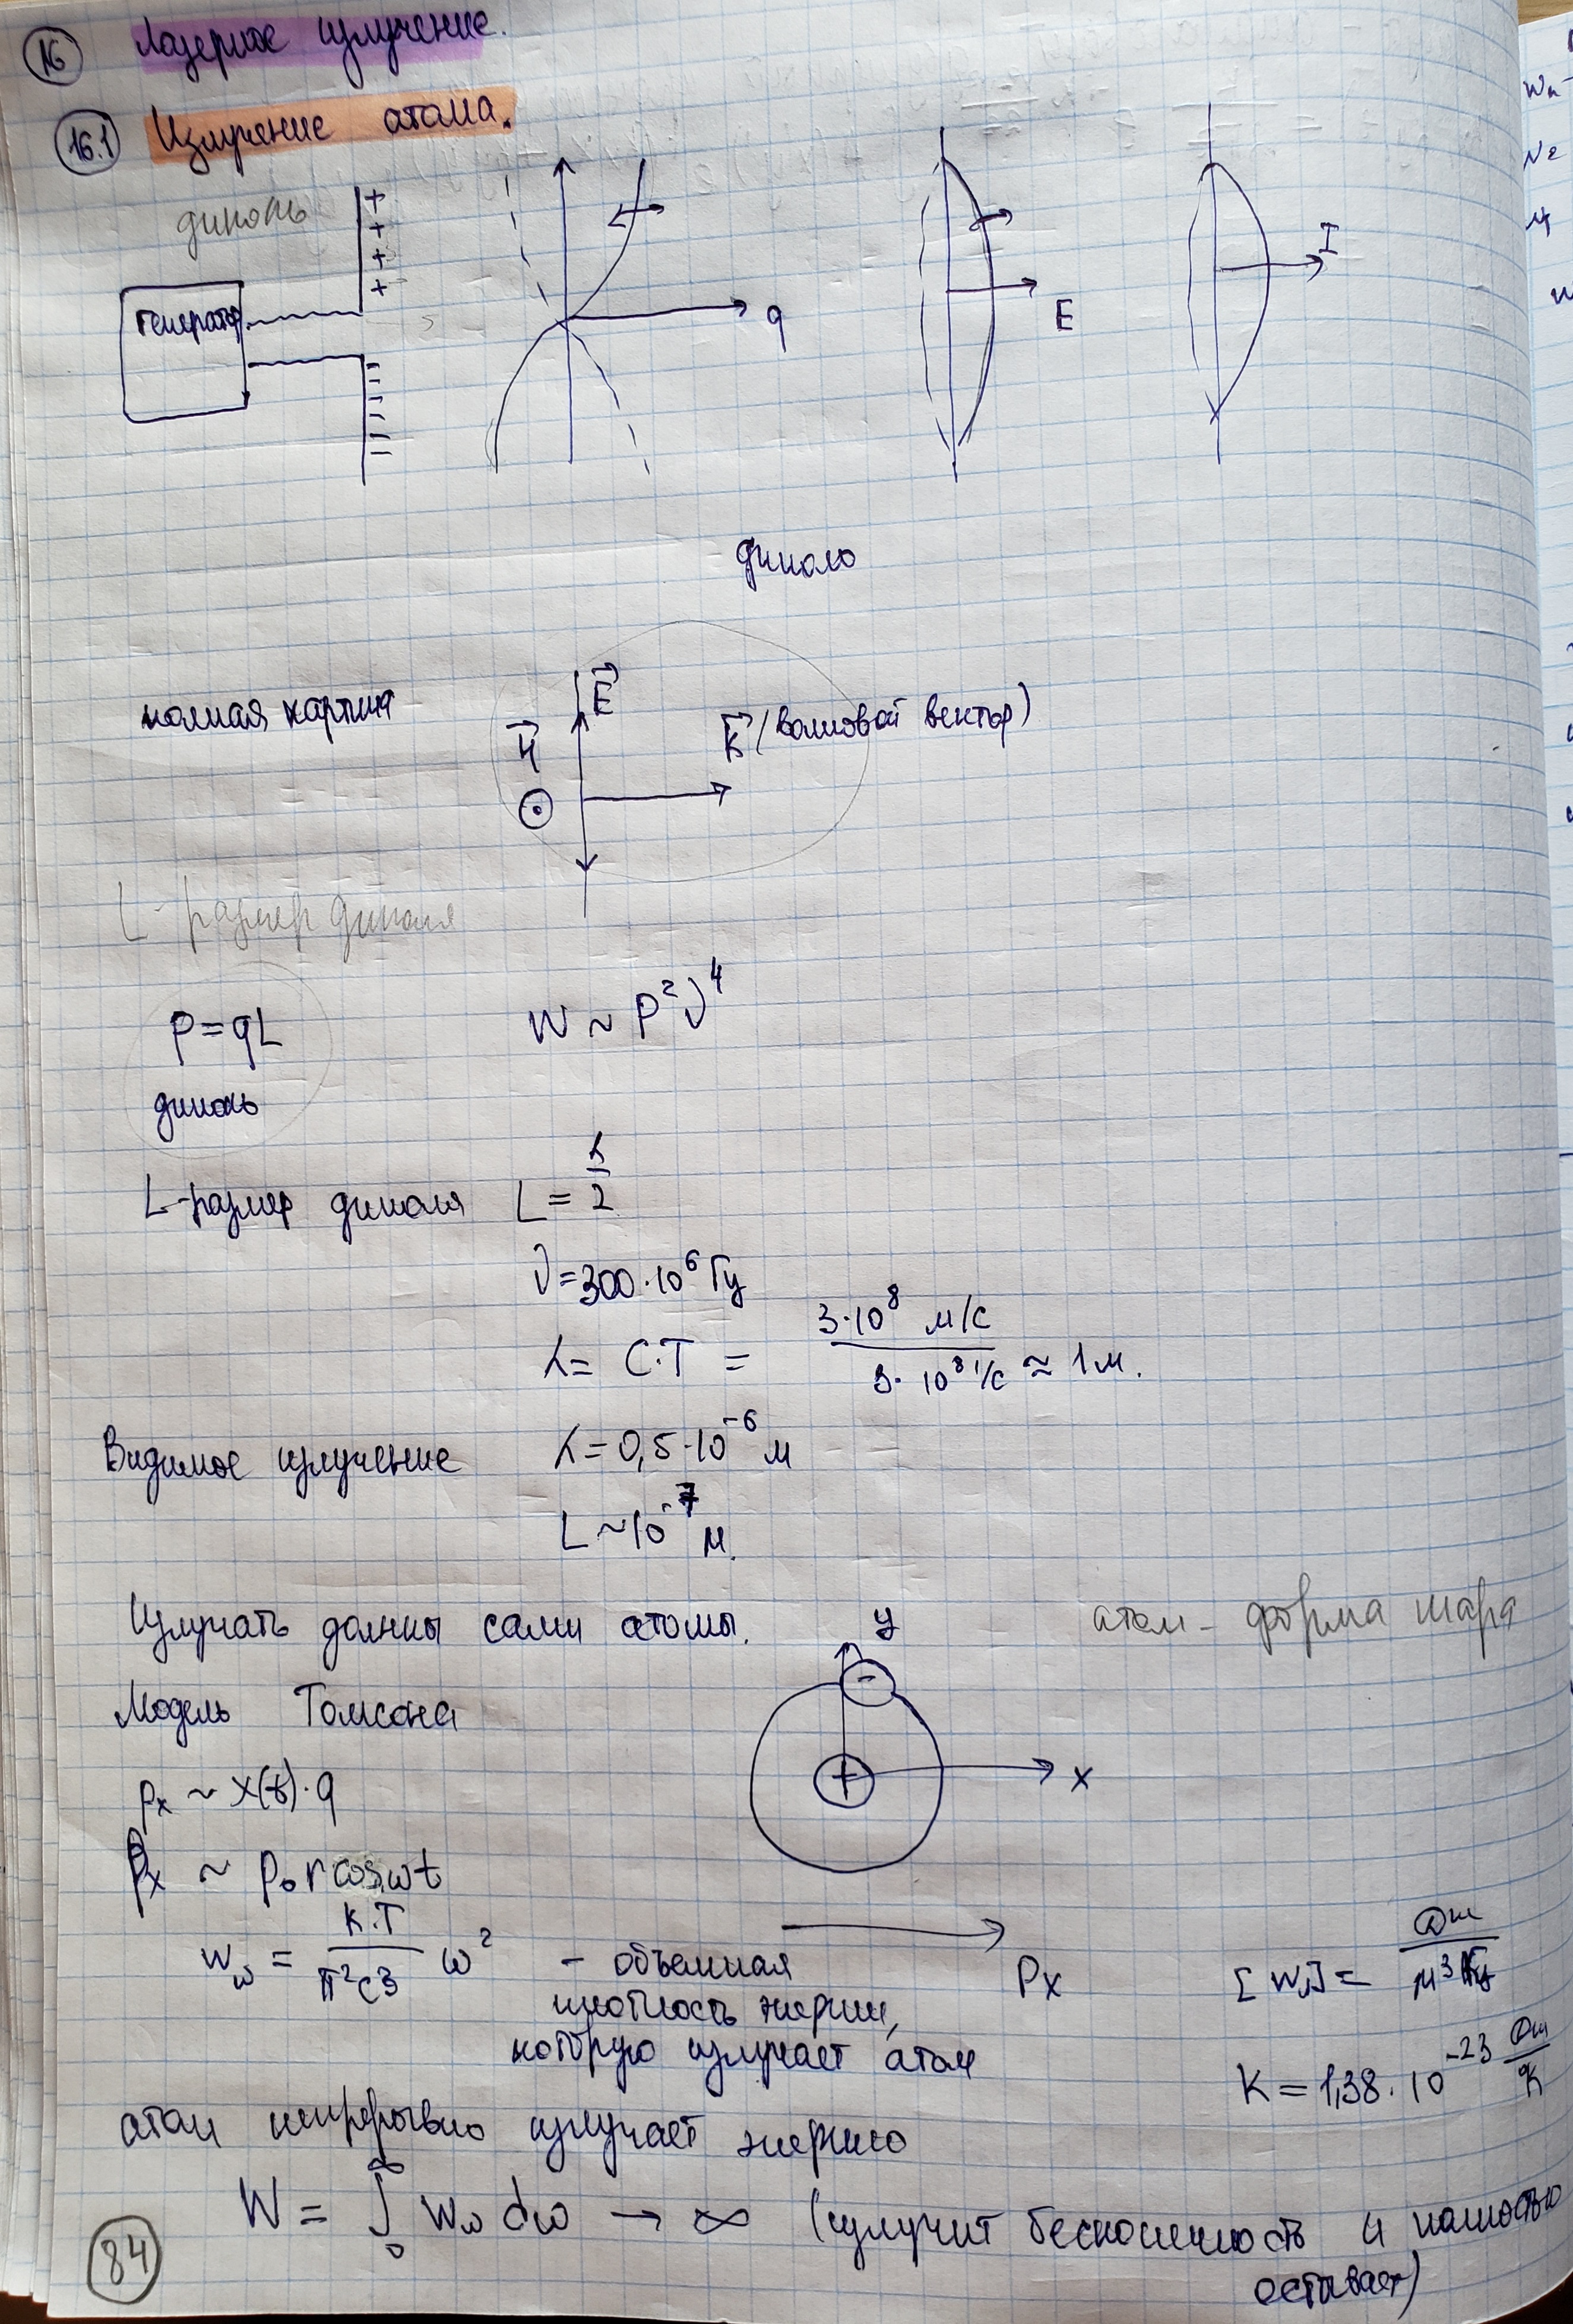 16 Лазерное излучение.
16.1 Излучение атома.
диполь
+ + + +
генератор
q
E
I
диполь
полная картина
H⃗ E⃗ k⃗ (волновой вектор)
L - размер диполя
p = qL W ~ p²ν⁴
диполь
L-размер диполя L = λ/2
ν = 300·10⁶ Гц
λ = C·T = 3·10⁸ м/с / 3·10⁸ 1/с ≈ 1 м.
Видимое излучение λ = 0,5·10⁻⁶ м
L ~ 10⁻⁷ м.
Излучать должны сами атомы. y атом - форма шара
Модель Томсона
+ - x
pₓ ~ x(t)·q
pₓ ~ p₀ r cos ωt
w_ω = K·T / π²c³ ω² - объемная pₓ [w] = Дж / м³Гц
плотность энергии,
которую излучает атом K = 1,38·10⁻²³ Дж/К
атом непрерывно излучает энергию
W = ∫₀^∞ w_ω dω → ∞ (излучит бесконечность и полностью
остывает)
84